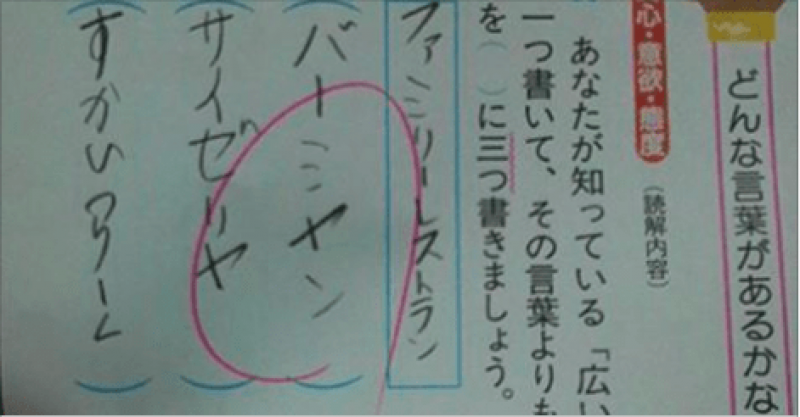 どんな言葉があるかな
心・意欲・態度
(読解内容)
あなたが知っている「広い
一つ書いて、その言葉よりも
を( )に三つ書きましょう。
ファミリーレストラン
(バーミヤン)
(サイゼリヤ)
(すかいラーク)